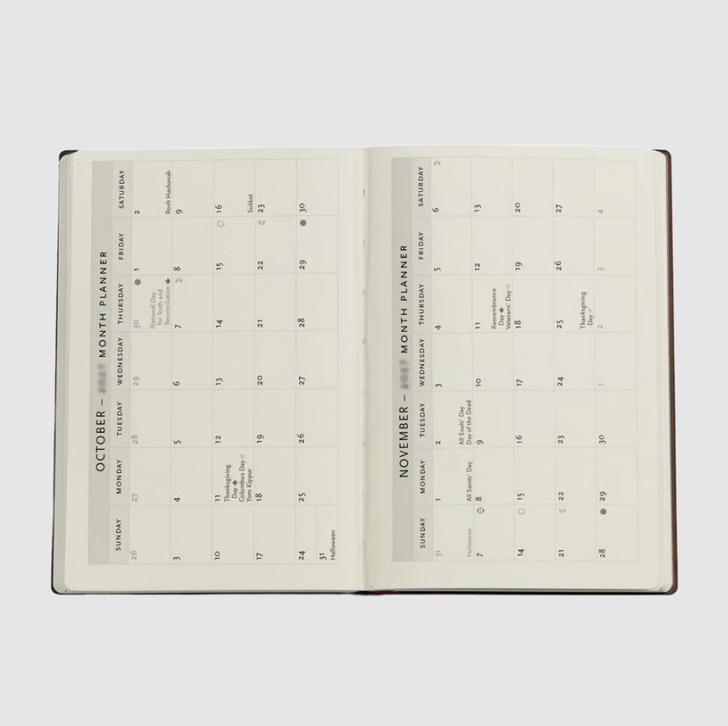 OCTOBER – MONTH PLANNER
SUNDAY MONDAY TUESDAY WEDNESDAY THURSDAY FRIDAY SATURDAY
26 27 28 29 30 1 2
National Day
for Truth and
Reconciliation
Rosh Hashanah
3 4 5 6 7 8 9
10 11 12 13 14 15 16
Thanksgiving
Day
Columbus Day
Yom Kippur
Sukkot
17 18 19 20 21 22 23
24 25 26 27 28 29 30
31
Halloween
NOVEMBER – MONTH PLANNER
SUNDAY MONDAY TUESDAY WEDNESDAY THURSDAY FRIDAY SATURDAY
31 1 2 3 4 5 6
Halloween
All Saints' Day
All Souls' Day
Day of the Dead
7 8 9 10 11 12 13
Remembrance
Day
Veterans' Day
14 15 16 17 18 19 20
21 22 23 24 25 26 27
Thanksgiving
Day
28 29 30 1 2 3 4